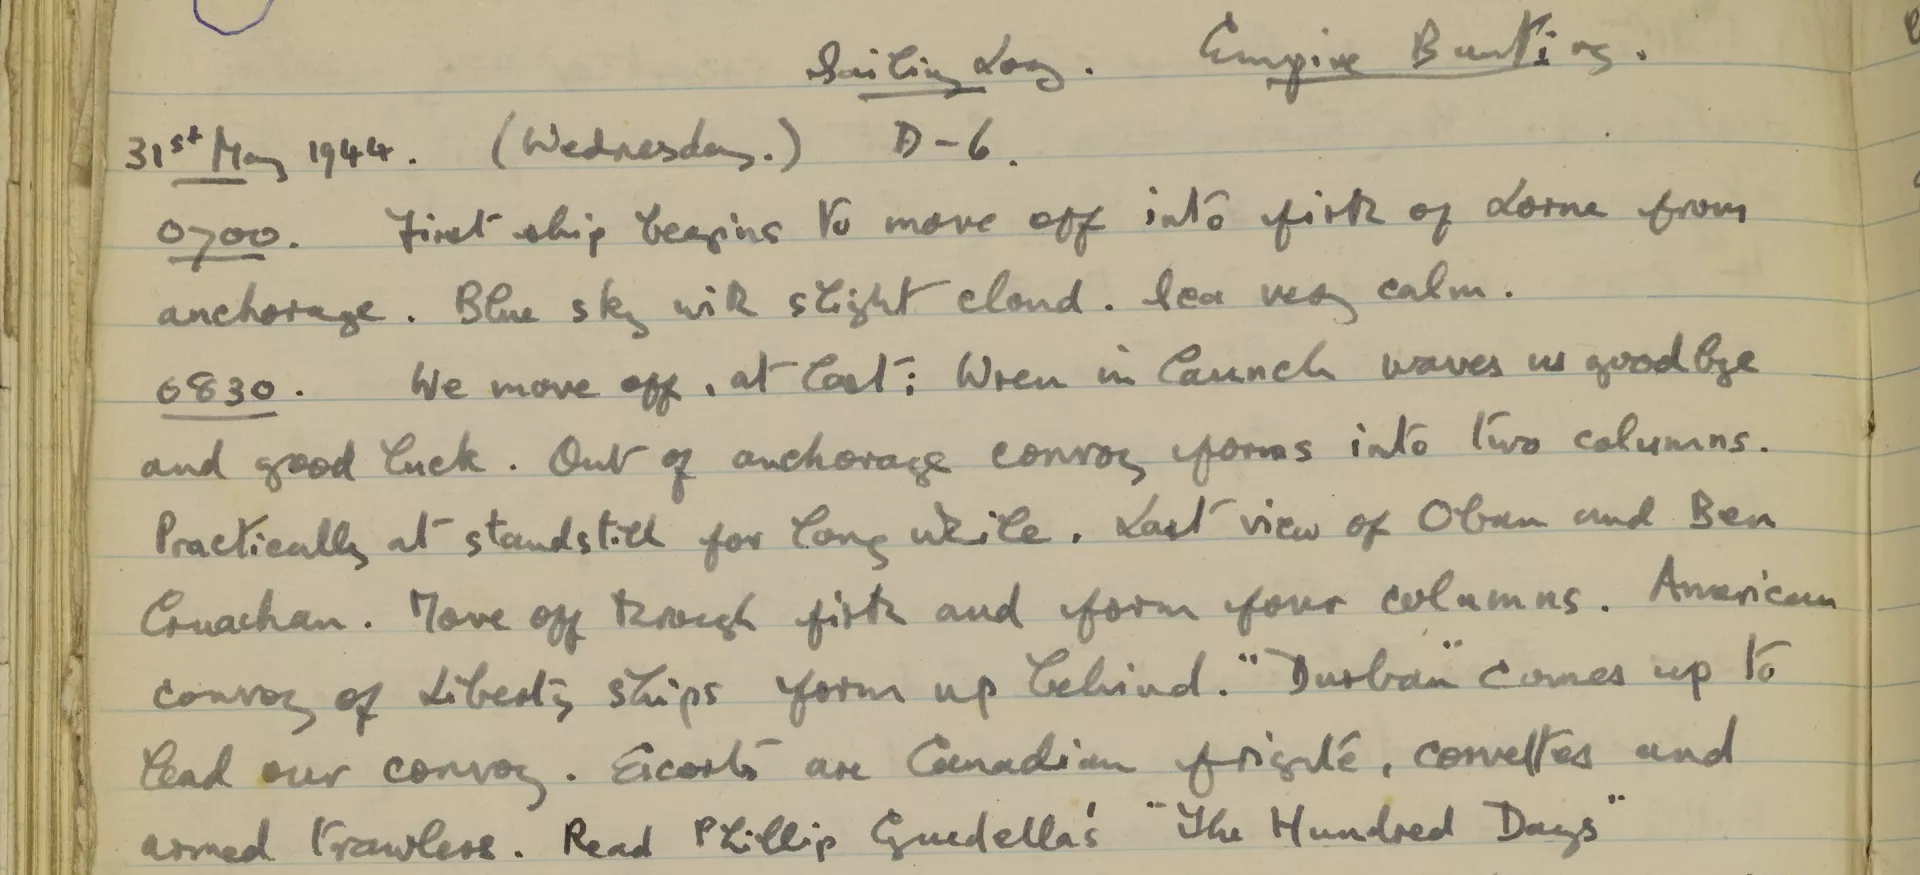 Sailing Log. Empire Bunting.
31st May 1944. (Wednesday.) D-6.
0700. First ship begins to move off into firth of Lorne from
anchorage. Blue sky with slight cloud. Sea very calm.
0830. We move off, at last: Wren in launch waves us goodbye
and good luck. Out of anchorage convoy forms into two columns.
Practically at standstill for long while. Last view of Oban and Ben
Cruachan. Move off through firth and form four columns. American
convoy of Liberty ships form up behind. "Durban" comes up to
lead our convoy. Escorts are Canadian frigate, corvettes and
armed trawlers. Read Phillip Guedella's "The Hundred Days"